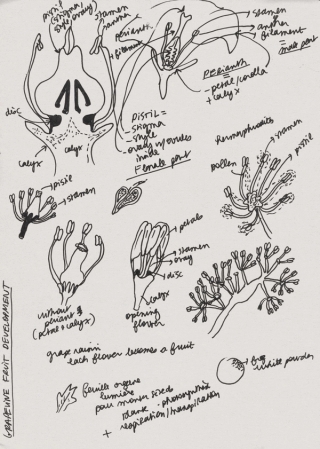 pistil
(stigma
style ovary)
stamen
anther
filament
perianth
stamen
anther
filament
= male part
PERIANTH
= petal/corolla
+ calyx
disc
calyx
calyx
PISTIL =
- stigma
- style
- ovary w/ovules
inside
Female part
Hermaphrodites
stamen
pistil
pollen
pistil
stamen
petals
stamen
ovary
disc
calyx
opening
flower
without
perianth
(petal + calyx)
grape raisin
each flower becomes a fruit
white powder
feuille organe
lumière
pour mener seeds
plante - photosynthèse
+ respiration/transpiration
GRAPEVINE FRUIT DEVELOPMENT